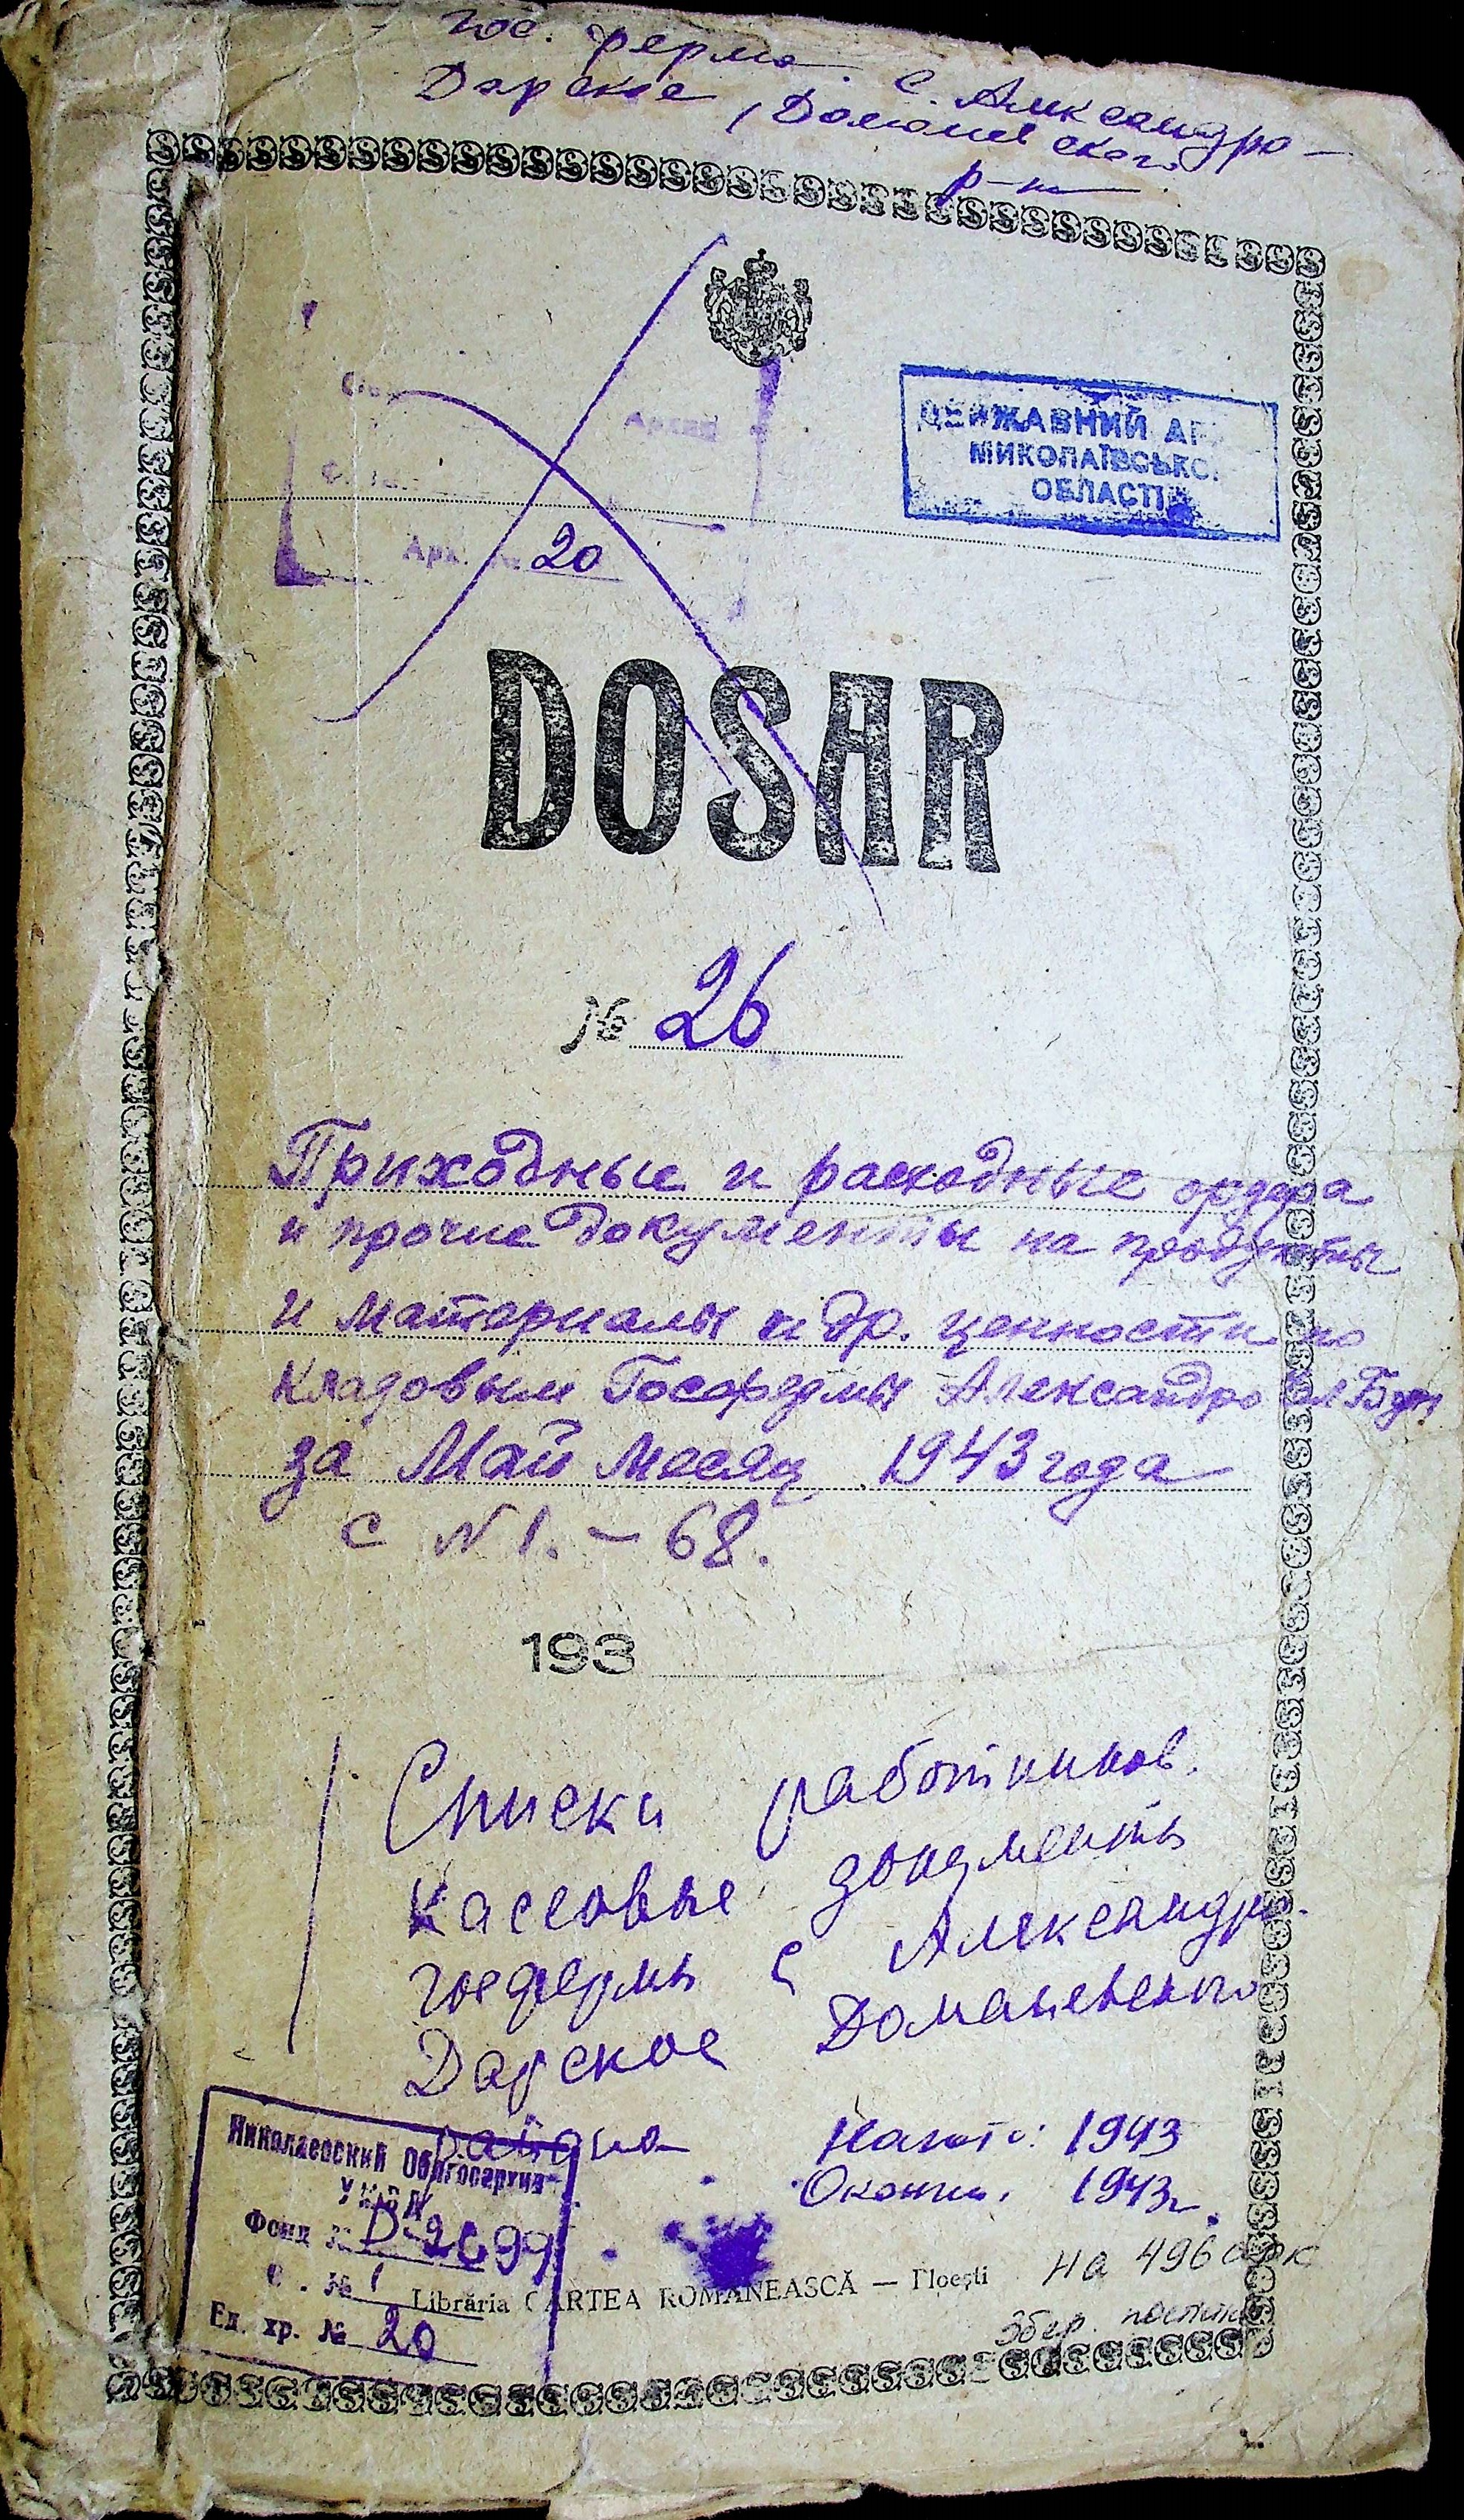 Гос. ферма с. Александро-
Дарское, Доманевского
р-на
ДЕРЖАВНИЙ АР
МИКОЛАЇВСЬКО
ОБЛАСТІ
Архив
Арх. № 20
DOSAR
№ 26
Приходные и расходные ордера
и прочие документы на продукты
и материалы и др. ценности по
кладовым Госфермы Александро
за Май месяц 1943 года
с N 1. – 68.
193
Списки работников.
Кассовые документы
госфермы с Александро-
Дарское Доманевского
района
Начато: 1943
Окончен. 1943г.
Николаевский Облгосархив
УМВД
Фонд № Р-2699
О . № 1
Ед. хр. № 20
Librăria CARTEA ROMÂNEASCĂ — Ploești
На 496 арк
Збер. постійно